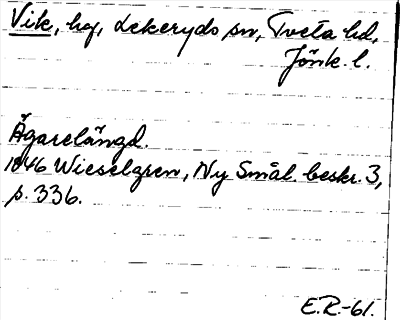 Vik, hg, Lekeryds sn, Tveta hd,
Jönk. l.
Ägarelängd.
1846 Wieselgren, Ny Smål. beskr. 3,
p. 336.
E.R.-61.